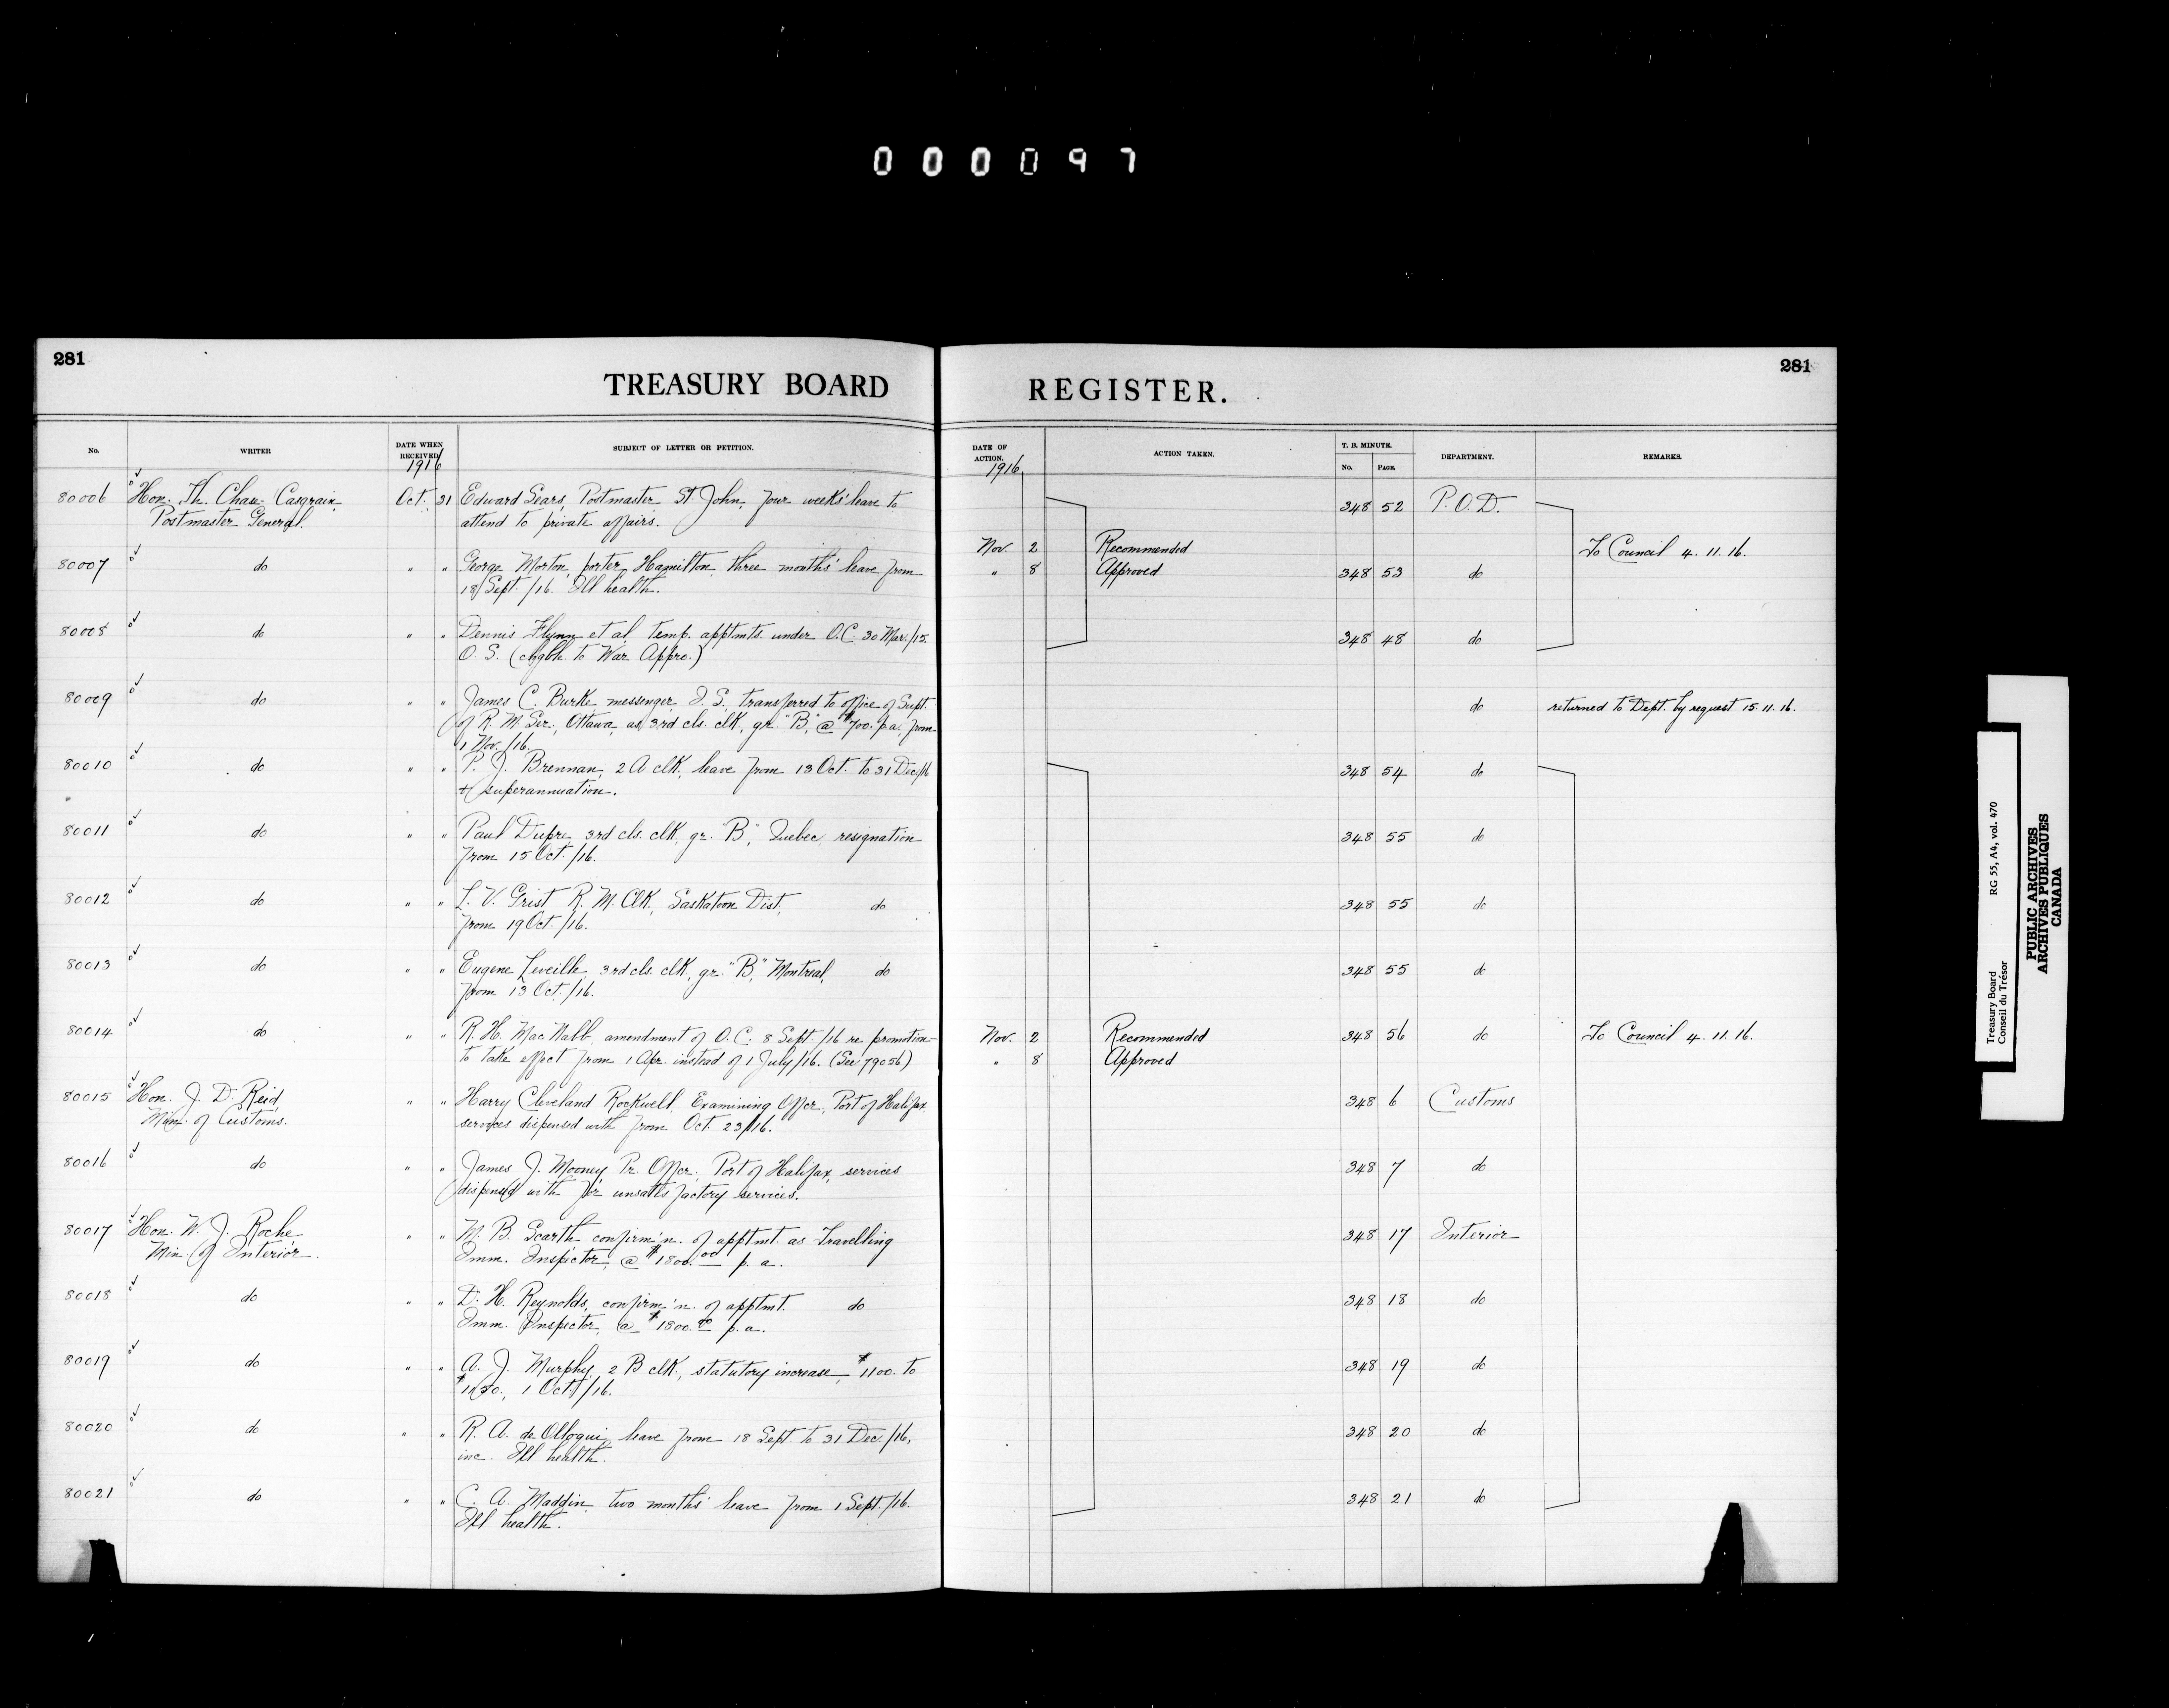 000097
281
281
TREASURY BOARD REGISTER.
No.
WRITER
DATE WHEN RECEIVED
1916
SUBJECT OF LETTER OR PETITION.
DATE OF ACTION.
1916
ACTION TAKEN.
T. B. MINUTE.
No.
PAGE.
DEPARTMENT.
REMARKS.
80006 Hon. Th. Chase-Casgrain, Oct. 31 Edward Sears, Postmaster St. John, four weeks' leave to 348 52 P.O.D.
Postmaster General. attend to private affairs.
Nov. 2 Recommended To Council 4.11.16.
80007 do " " George Morton, porter, Hamilton, three months' leave from " 8 Approved 348 53 do
18 Sept./16. Ill health.
80008 do " " Dennis Flynn et al, temp. apptmts. under O.C. 30 Mar./15. 348 48 do
O.S. (chgble. to War Appro.)
80009 do " " James C. Burke, messenger, I.S., transferred to office of Supt. do returned to Dept. by request 15.11.16.
of R.M. Ser., Ottawa, as 3rd cls. clk, gr. "B", @ $700. p.a., from
1 Nov./16.
80010 do " " P. J. Brennan, 2 A clk, leave from 13 Oct. to 31 Dec/16 348 54 do
+ superannuation.
80011 do " " Paul Dupre, 3rd cls. clk, gr. "B", Quebec, resignation 348 55 do
from 15 Oct./16.
80012 do " " L. V. Grist R. M. Clk, Saskatoon Dist., do 348 55 do
from 19 Oct./16.
80013 do " " Eugene Leveille, 3rd cls. clk, gr. "B," Montreal, do 348 55 do
from 13 Oct./16.
80014 do " " R. H. MacNabb, amendment of O.C. 8 Sept./16 re promotion Nov. 2 Recommended 348 56 do To Council 4.11.16.
to take effect from 1 Apr. instead of 1 July/16. (See 79056) " 8 Approved
80015 Hon. J. D. Reid, " " Harry Cleveland Rockwell, Examining Offcr., Port of Halifax 348 6 Customs
Min. of Customs. services dispensed with from Oct. 23/16.
80016 do " " James J. Mooney Pr. Offcr. Port of Halifax, services 348 7 do
dispensed with for unsatisfactory services.
80017 Hon. W. J. Roche " " M. B. Scarth confirm'n. of apptmt. as Travelling 348 17 Interior
Min. of Interior. Imm. Inspector, @ $1800.00 p. a.
80018 do " " D. H. Reynolds, confirm'n. of apptmt. do 348 18 do
Imm. Inspector, @ $1800.00 p.a.
80019 do " " A. J. Murphy, 2 B clk, statutory increase, $1100. to 348 19 do
1 Oct./16.
80020 do " " R. A. de Olloqui, leave from 18 Sept. to 31 Dec./16, 348 20 do
inc. Ill health.
80021 do " " C. A. Maddin two months' leave from 1 Sept./16. 348 21 do
Ill health.
Treasury Board RG 55, A4, vol. 470
Conseil du Trésor
PUBLIC ARCHIVES
ARCHIVES PUBLIQUES
CANADA